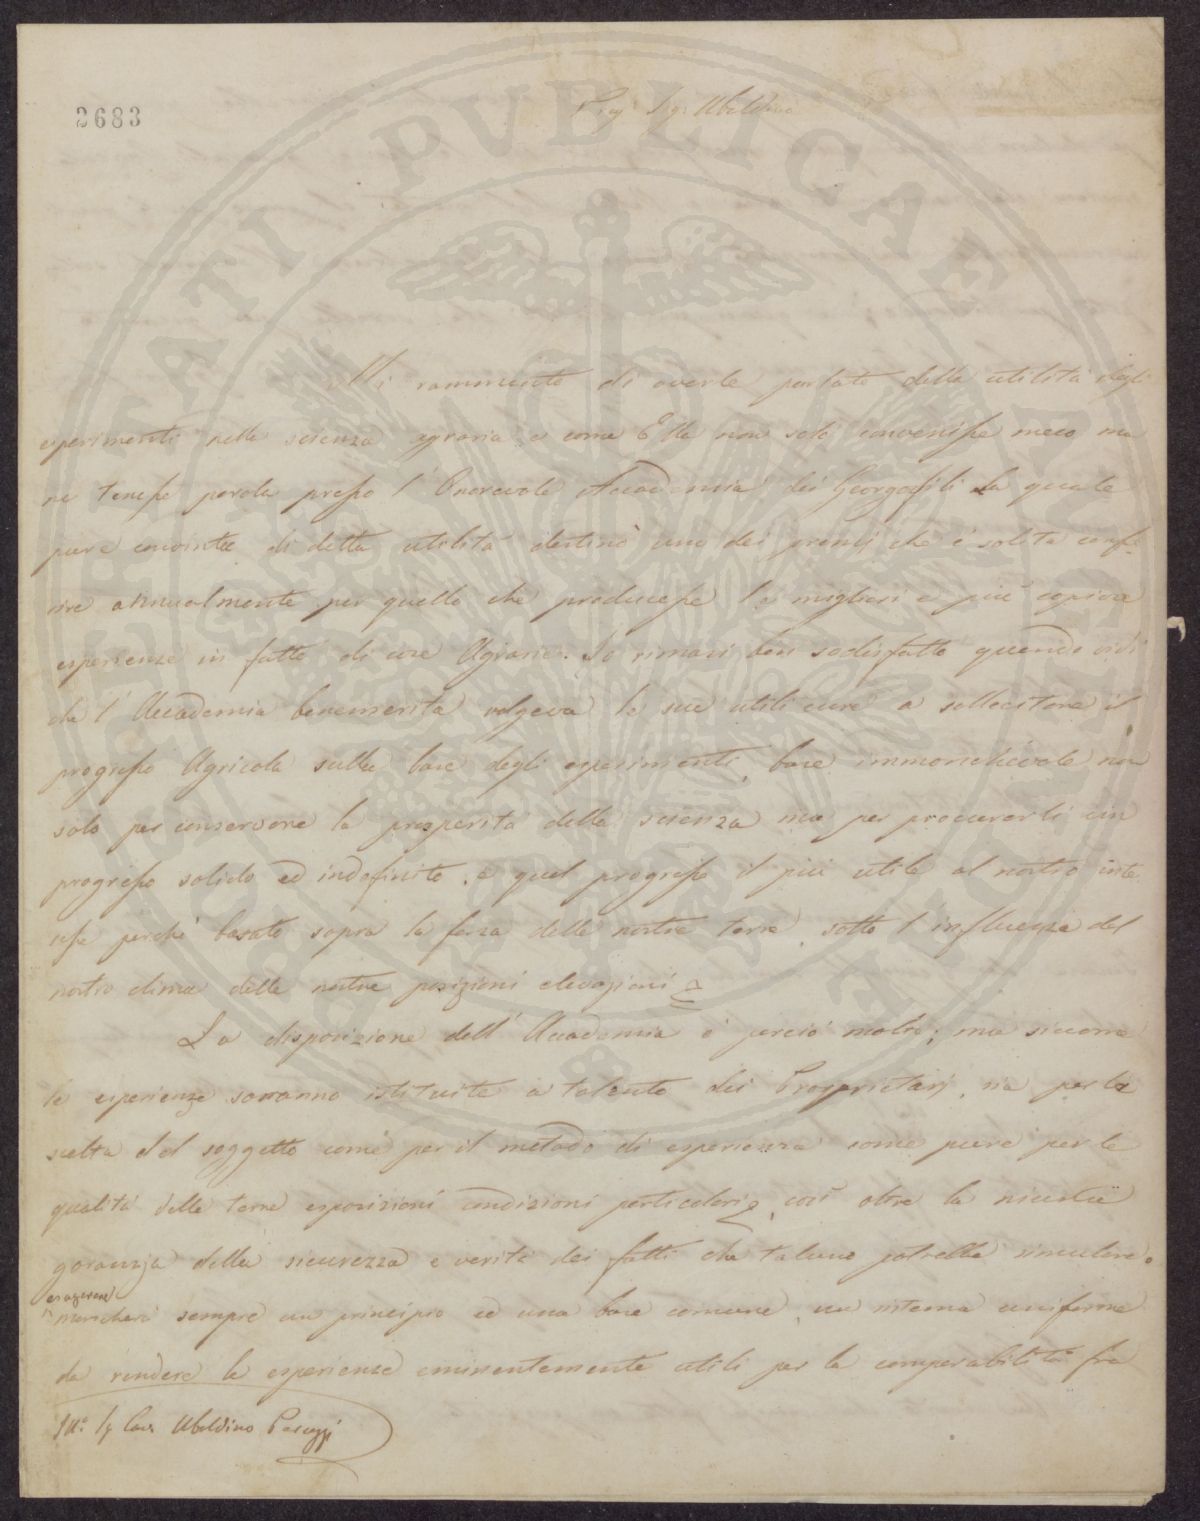 2683
Preg. Sig. Ubaldino
Mi rammento di averle parlato della utilità degli
esperimenti nella scienza agraria e come Ella non solo convenisse meco ma
ne tenesse parola presso l'Onorevole Accademia dei Georgofili la quale
pure convinta di detta utilità destinò uno dei premi che è solita confe-
rire annualmente per quello che producesse le migliori e più copiose
esperienze in fatto di cose Agrarie. Io rimasi ben sodisfatto quando vidi
che l'Accademia benemerita volgeva le sue utili cure a sollecitare il
progresso Agricola sulla base degli esperimenti, base immanchevole non
solo per conservare la prosperità della scienza ma per procurarli un
progresso solido ed indefinito, e quel progresso il più utile al nostro inte
resse perchè basato sopra la forza delle nostre terre, sotto l'influenza del
nostro clima delle nostre posizioni elevazioni
La disposizione dell'Accademia è perciò molto; ma siccome
le esperienze saranno istituite a talento dei Proprietarj, sia per la
scelta del soggetto come per il metodo di esperienza come pure per le
qualità delle terre esposizioni condizioni particolari, così oltre la
garanzia della sicurezza e verità dei fatti che taluno potrebbe
esagerare
mancherà sempre un principio ed una base comune, un sistema uniforme
da rendere le esperienze eminentemente utili per la comparabilità fra
Ill.o Sig Cav. Ubaldino Peruzzi
PVBLICAE